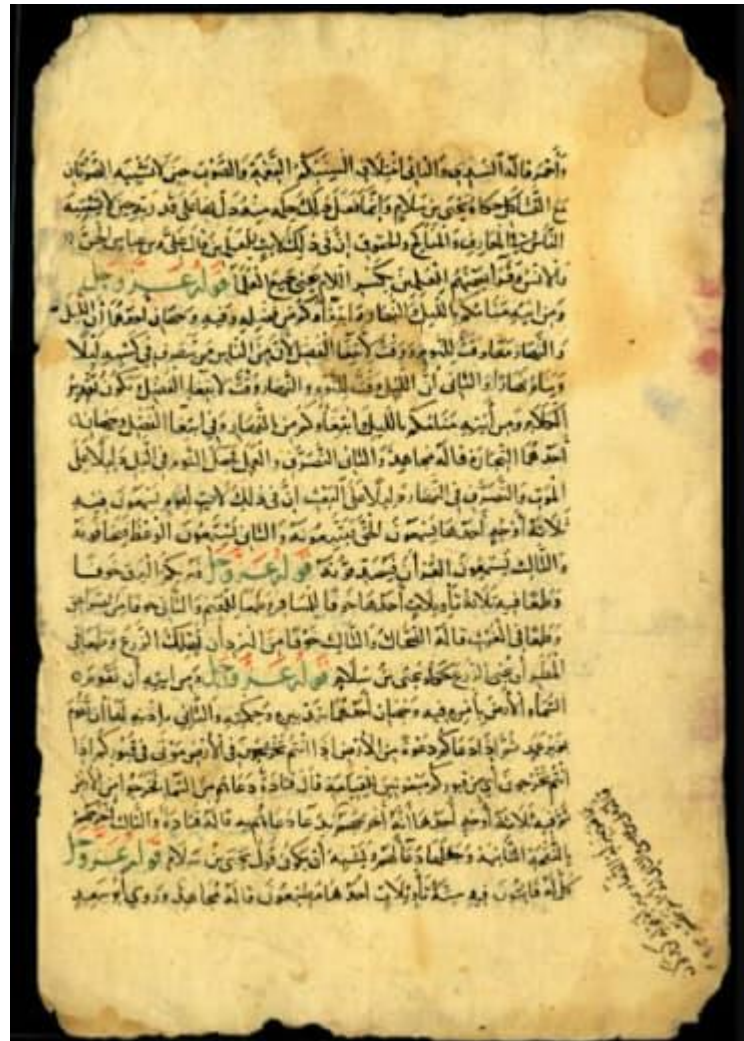 وأحمر قاله السدي والثاني اختلاف ألسنتكم النغمة والصوت حتى لا تشتبه الصوتان
مع التشاكل حكاه يحيى بن سلام وإنما فصل ذلك
الناس في المعارف والمناكح والحقوق إن في ذلك لآيات للعالمين قال علي بن عباس الجن
والانس وقرأ بعضهم للعلمين بكسر اللام يعني جميع العلما قوله عز وجل
ومن ايته منامكم بالليل والنهار وابتغاؤكم من فضله وفيه وجهان احدهما أن الليل
والنهار معا وقت للنوم ووقت لابتغا الفضل لأن من الناس من يتصرف في كسبه ليلا
وينام نهارا والثاني أن الليل وقت للنوم والنهار وقت لابتغا الفضل يكون تقدير
الكلام ومن آيته منامكم بالليل وابتغاوكم من بالنهار وفي ابتغا الفضل وجهان
أحدهما التجارة قاله مجاهد والثاني التصرف والعمل فجعل النوم في الليل دليلا على
الموت والتصرف في النهار دليلا على البعث ان في ذلك لآيات لقوم يسمعون فيه
ثلاثة أوجه أحدها يسمعون الحق فيتبعونه والثاني يسمعون الوعظ فيخافونه
والثالث يسمعون القرآن فيصدقونه قوله عز وجل يريكم البرق خوفا
وطمعا فيه ثلاثة تأويلات أحدها خوفا للمسافر وطمعا للمقيم والثاني خوفا من الصواعق
وطمعا في الغيث قاله الضحاك والثالث خوفا من البرد أن يهلك الزرع وطمعا في
المطر أن يحيي الزرع حكاه يحيى بن سلام قوله عز وجل ومن ايته أن تقوم
السماء والأرض بأمره فيه وجهان أحدهما بتدبيره وحكمته والثاني بإذنه لها أن تقوم
بغير عمد ثم إذا دعاكم دعوة من الأرض اذا انتم تخرجون في الأرض موتى في قبوركم اذا
انتم تخرجون أي من قبوركم مبعوثين للقيامة قال قتادة دعاهم من السما فخرجوا من الأرض
ثم فيه ثلاثة أوجه أحدها أنه أخرجهم بدعا دعاهم به قاله قتادة والثالث أخرجهم
بالنفخة الثانية وجعلها دعا لهم ويشبه أن يكون قول يحيى بن سلام قوله عز وجل
كل له قانتون فيه ستة تأويلات احدها مطيعون قاله مجاهد وروي أبو سعيد